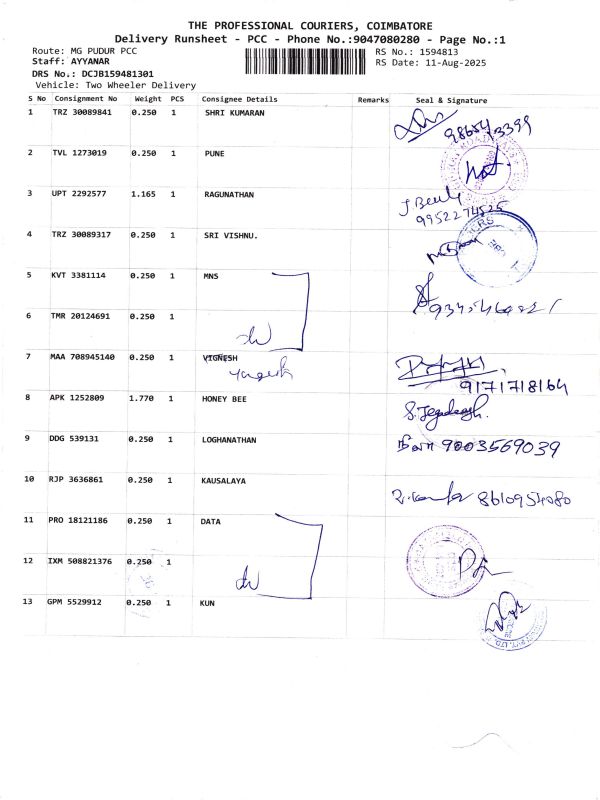 THE PROFESSIONAL COURIERS, COIMBATORE
Delivery Runsheet - PCC - Phone No.:9047080280 - Page No.:1
Route: MG PUDUR PCC RS No.: 1594813
Staff: AYYANAR RS Date: 11-Aug-2025
DRS No.: DCJB159481301
Vehicle: Two Wheeler Delivery
S No Consignment No Weight PCS Consignee Details Remarks Seal & Signature
1 TRZ 30089841 0.250 1 SHRI KUMARAN
2 TVL 1273019 0.250 1 PUNE
3 UPT 2292577 1.165 1 RAGUNATHAN
9952274525
4 TRZ 30089317 0.250 1 SRI VISHNU.
5 KVT 3381114 0.250 1 MNS
6 TMR 20124691 0.250 1
7 MAA 708945140 0.250 1 VIGNESH
9171718164
8 APK 1252809 1.770 1 HONEY BEE S. Jegadeesh.
9 DDG 539131 0.250 1 LOGHANATHAN 9003569039
10 RJP 3636861 0.250 1 KAUSALAYA 8610954080
11 PRO 18121186 0.250 1 DATA
12 IXM 508821376 0.250 1
13 GPM 5529912 0.250 1 KUN